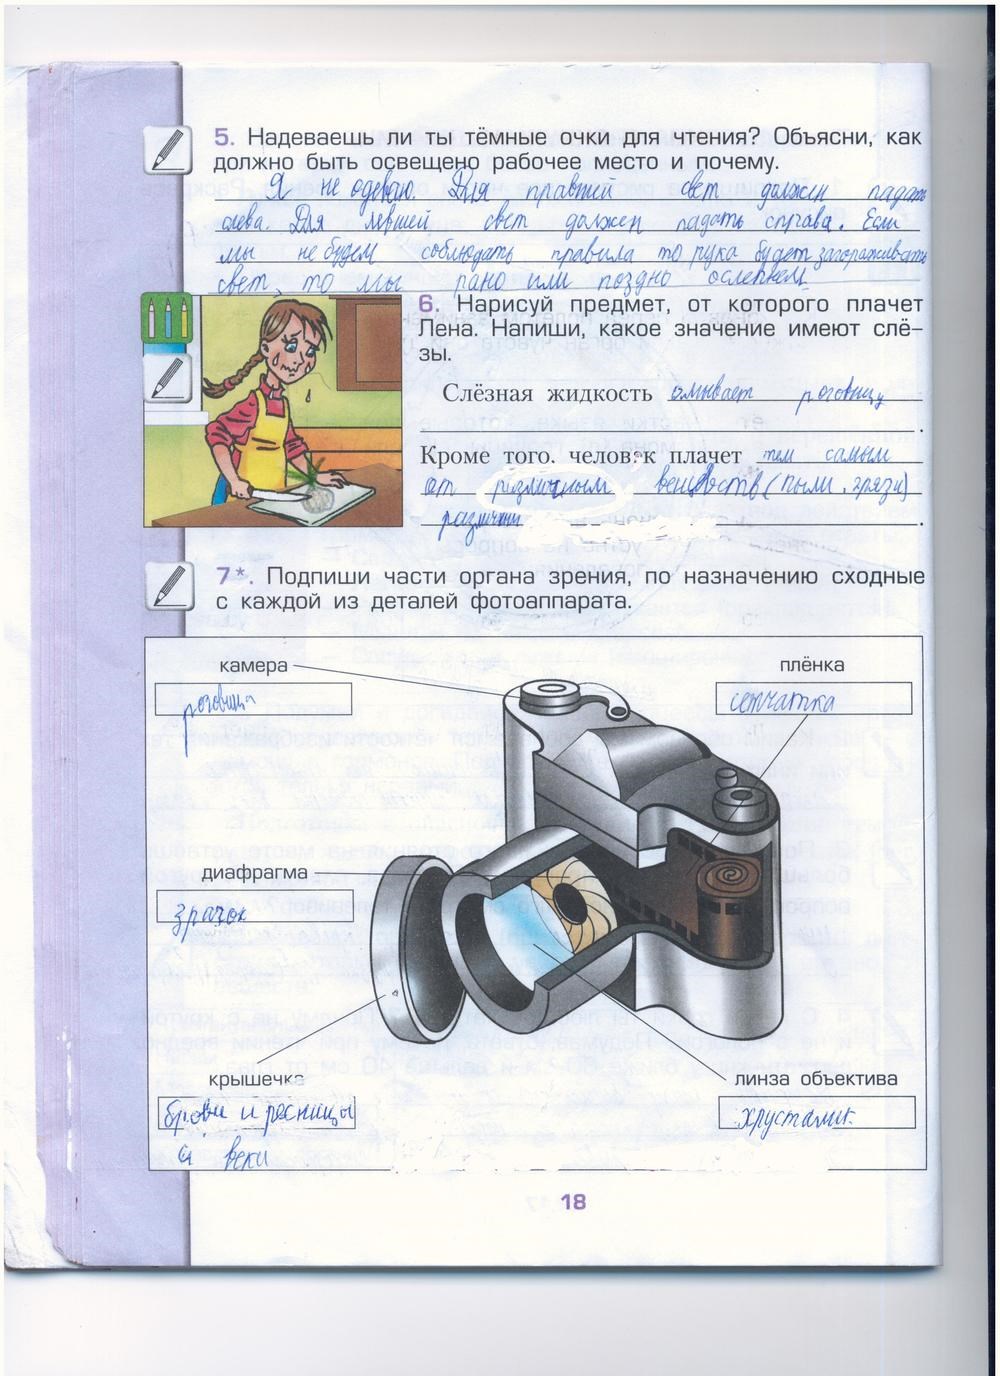 5. Надеваешь ли ты тёмные очки для чтения? Объясни, как
должно быть освещено рабочее место и почему.
Я не одеваю. Для правшей свет должен падать
слева. Для левшей свет должен падать справа. Если
мы не будем соблюдать правила то рука будет загораживать
свет, то мы рано или поздно ослепнем
6. Нарисуй предмет, от которого плачет
Лена. Напиши, какое значение имеют слё-
зы.
Слёзная жидкость омывает роговицу
.
Кроме того, человек плачет тем самым
от различным веществ (пыли, грязи)
различн .
7*. Подпиши части органа зрения, по назначению сходные
с каждой из деталей фотоаппарата.
камера
роговица
плёнка
сетчатка
диафрагма
зрачок
крышечка
брови и ресницы
и веки
линза объектива
хрусталик
18